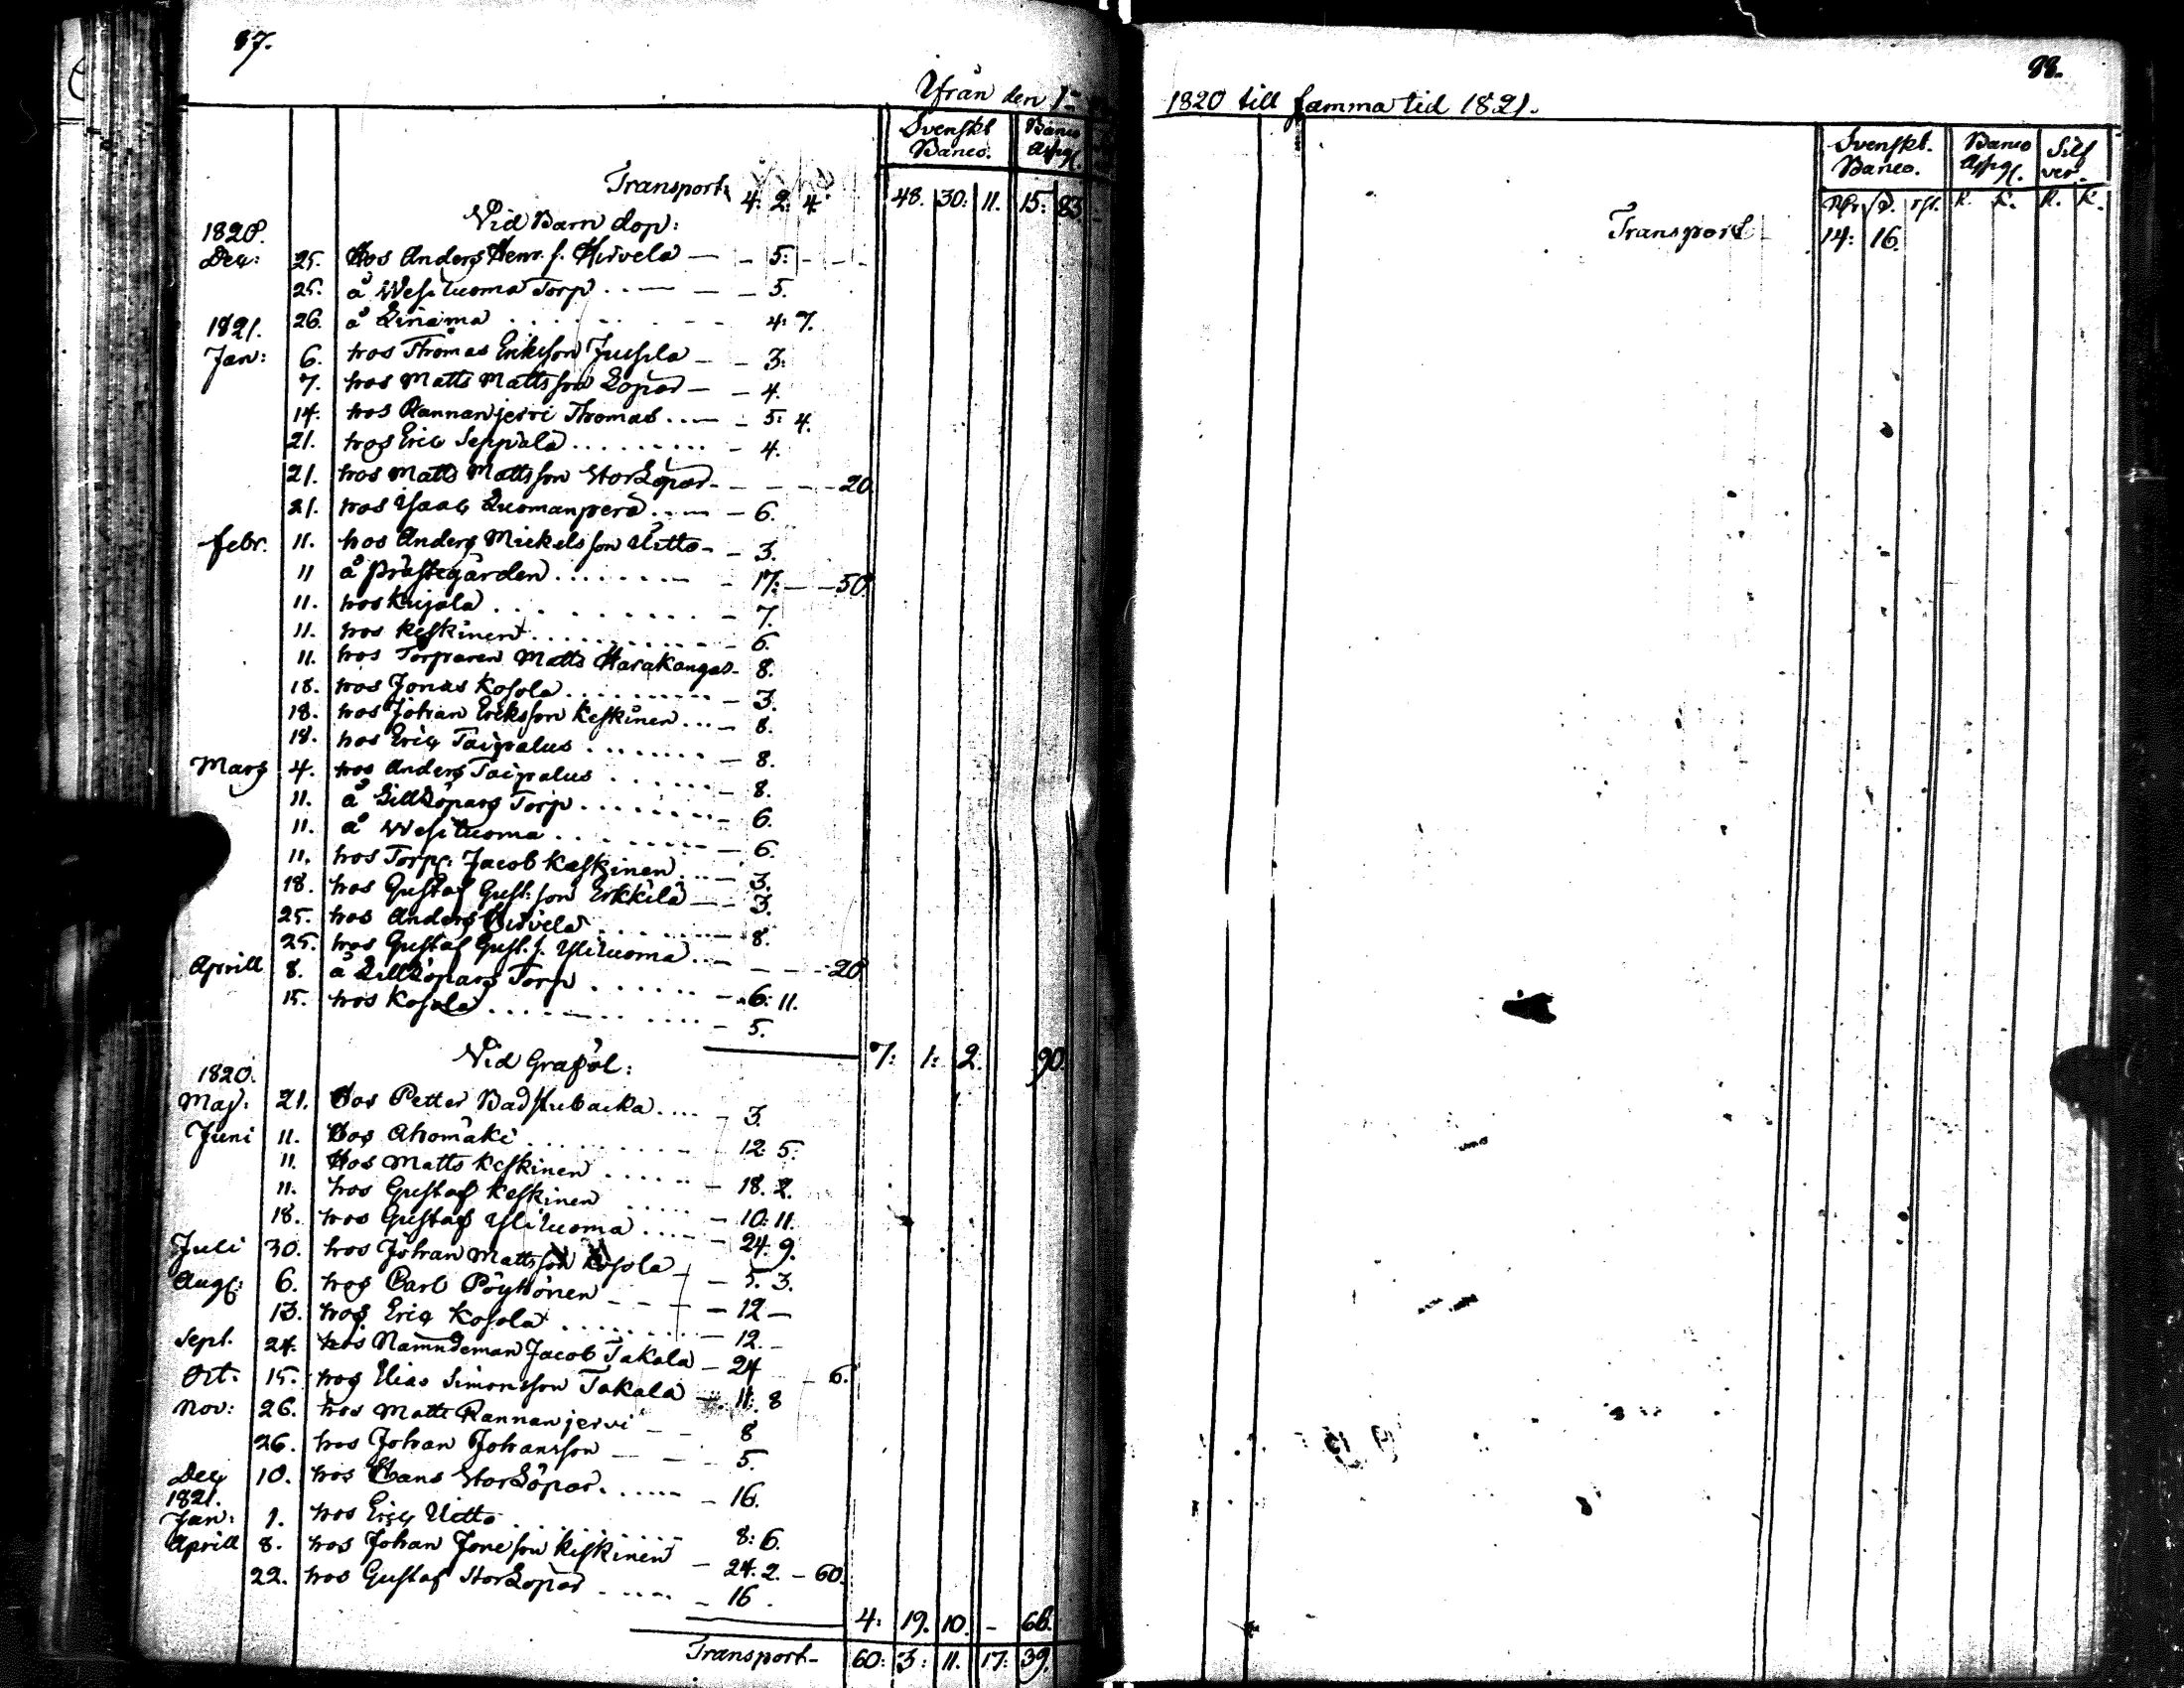 87.
Ifrån den 1=
Svenskt Banco. Banco Assig.
Transport 4: 2: 4. 48. 30: 11. 15: 83.
Vid Barn dop:
1820.
Dec: 25. Hos Anders Henr. s. Hirvela — 5:
25. å Wesiluoma Torp — 5.
26. å Liinama 4: 7.
1821.
Jan: 6. hos Thomas Eriksson Jussila — 3:
7. hos Matts Mattsson Lopar — 4.
14. hos Rannanjervi Thomas — 5: 4.
21. hos Eric Seppälä — 4.
21. hos Matts Mattsson StorLopar — 20.
21. hos Isaac Luomanperä — 6.
Febr. 11. hos Anders Mickelsson Uitto — 3.
11 å Prästegården — 17: — 50.
11. hos Kujala — 7.
11. hos Keskinen — 6.
11. hos Torparen Matts Harakangas — 8.
18. hos Jonas Kosola — 3.
18. hos Johan Eriksson Keskinen — 8.
18. hos Eric Taipalus — 8.
Mars 4. hos Anders Taipalus — 8.
11. å LillLöpars Torp — 6.
11. å Wesiluoma — 6.
11. hos Torp: Jacob Keskinen — 3.
18. hos Gustaf Gust:son Erkkilä — 3.
25. hos Anders Hirvela — 8.
25. hos Gustaf Gust. s. Yliluoma — 20
Aprill 8. å LillLöpars Torp — 6: 11.
15. hos Kosola — 5.
7: 1: 2. 90.
Vid Graföl:
1820.
Maj: 21. Hos Petter Badstubacka — 3.
Juni 11. Hos Ahomäki — 12: 5.
11. Hos Matts Keskinen — 18. 2.
11. hos Gustaf Keskinen — 10: 11.
18. hos Gustaf Yliluoma — 24: 9.
Juli 30. hos Johan Mattsson Kosola — 5. 3.
Aug: 6. hos Carl Pöyhönen — 12 —
13. hos Eric Kosola — 12. -
Sept. 24. hos Nämndeman Jacob Takala — 24 — 6.
Oct. 15. hos Elias Simonsson Takala — 11: 8
Nov: 26. hos Matts Rannanjervi — 8
26. hos Johan Johansson — 5.
Dec 10. hos Hans StorLöpar — 16.
1821.
Jan: 1. hos Eric Uitto 8: 6.
Aprill 8. hos Johan Joneson Keskinen — 24. 2. — 60.
22. hos Gustaf StorLopar — 16.
4: 19. 10. - 66.
Transport- 60: 3: 11. 17: 39.
88.
1820 till samma tid 1821.
Svenskt. Banco. Banco Assig. Silfver.
R. K. R. K.
Transport 14: 16.